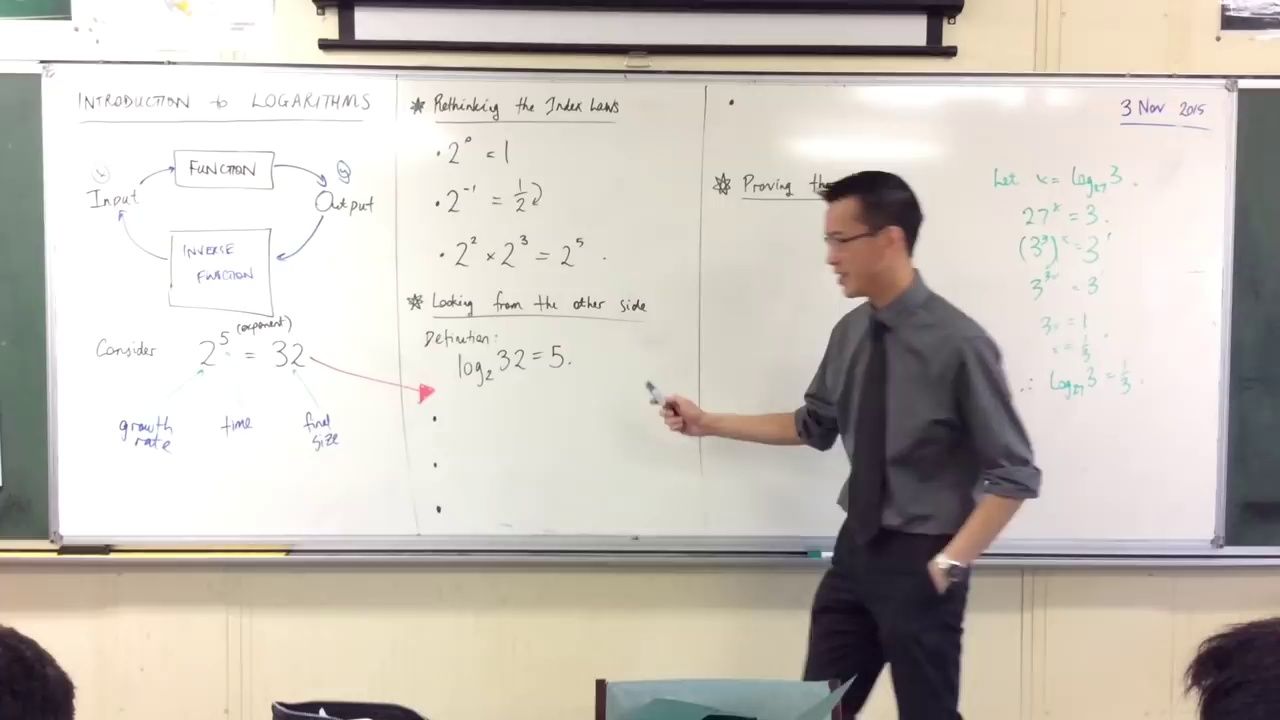 INTRODUCTION to LOGARITHMS
(x)
(y)
FUNCTION
Input
Output
INVERSE
FUNCTION
(exponent)
Consider 2⁵ = 32
growth
rate
time
final
size
Rethinking the Index Laws
• 2⁰ = 1
• 2⁻¹ = 1/2
• 2² × 2³ = 2⁵.
Looking from the other side
Definition:
log₂ 32 = 5.
Proving the
3 Nov 2015
Let x = log₂₇ 3.
27ˣ = 3.
(3³)ˣ = 3¹
3³ˣ = 3
3x = 1
x = 1/3.
∴ log₂₇ 3 = 1/3.